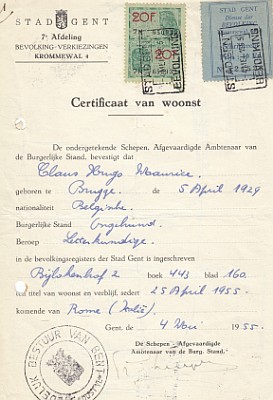 STAD GENT
7e Afdeling
BEVOLKING-VERKIEZINGEN
KROMMEWAL 4
20F
20F
STAD GENT
Dienst der
BEVOLKING
Certificaat van woonst
De ondergetekende Schepen, Afgevaardigde Ambtenaar van
de Burgerlijke Stand, bevestigt dat
Claus Hugo Maurice
geboren te Brugge de 5 April 1929
nationaliteit Belgische
Burgerlijke Stand Ongehuwd
Beroep Letterkundige
in de bevolkingsregisters der Stad Gent is ingeschreven
Bijlokenhof 2 boek 443 blad 160
ten titel van woonst en verblijf, sedert 25 April 1955.
komende van Rome (Italië)
Gent, de 4 Mei 1955.
De Schepen - Afgevaardigde
Ambtenaar van de Burg. Stand,
BESTUUR VAN GENT